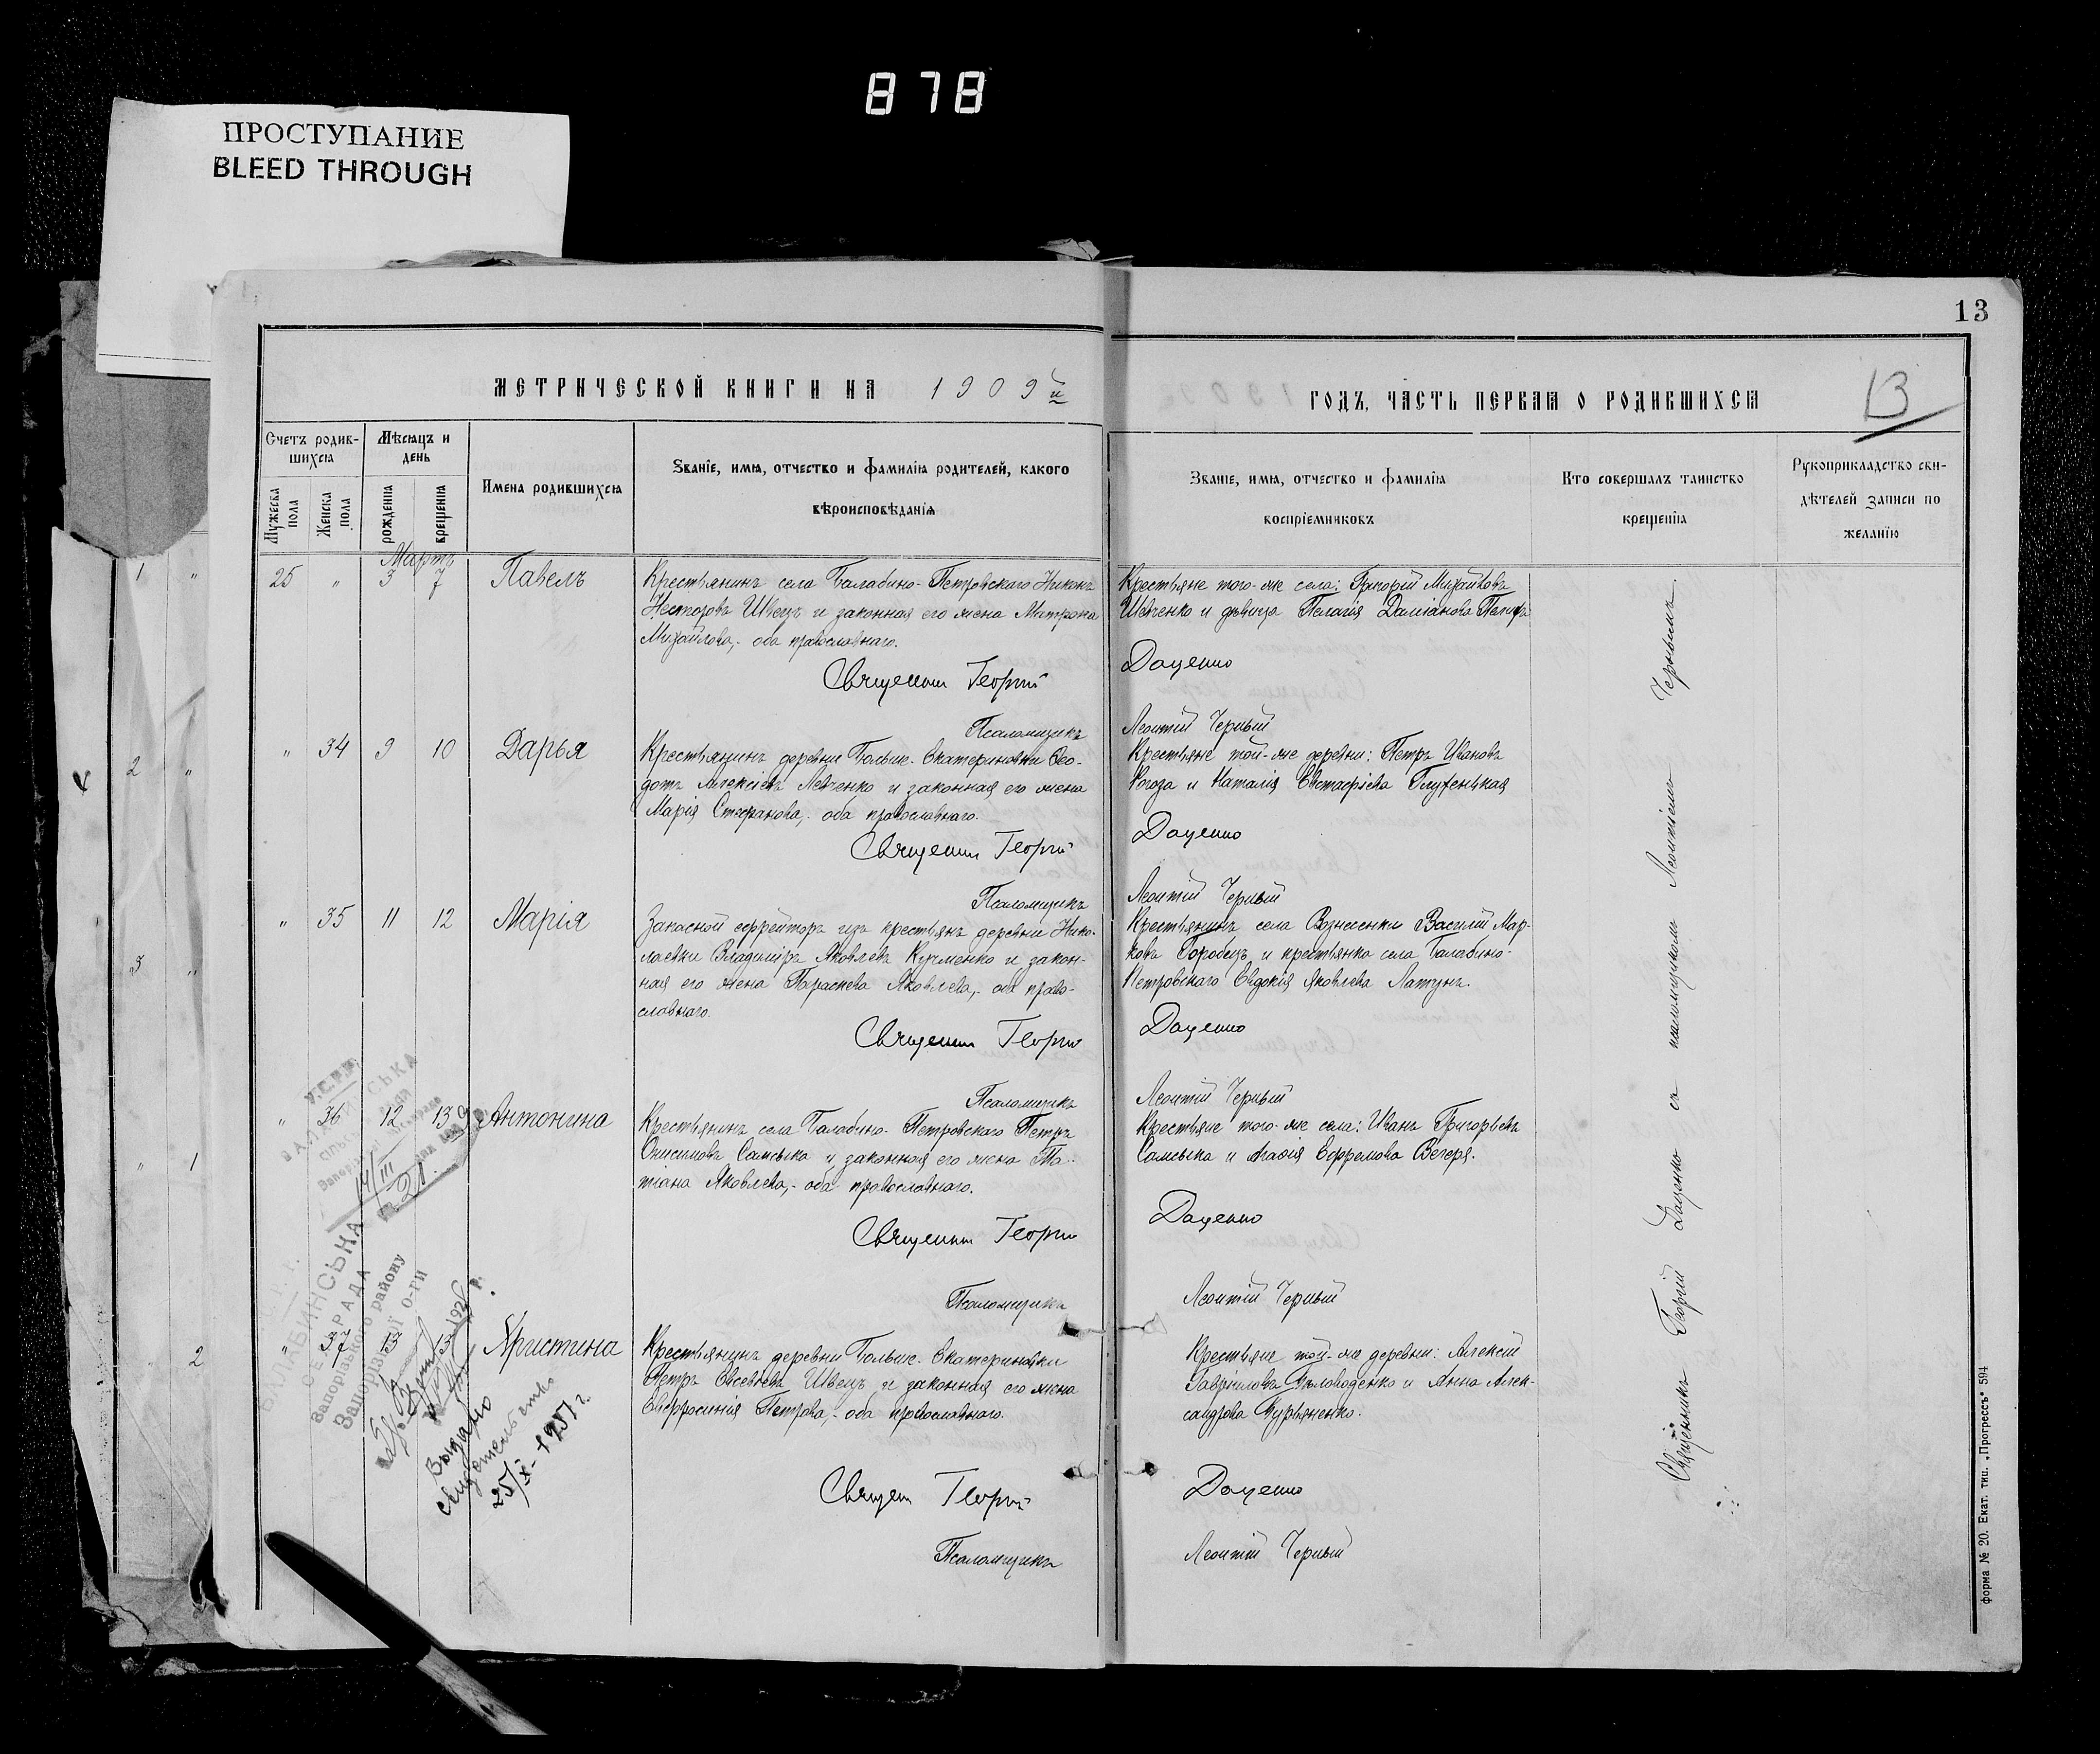 878
ПРОСТУПАНИЕ
BLEED THROUGH
13
13
МЕТРИЧЕСКОЙ КНИГИ НА 1909й
ГОДЪ, ЧАСТЬ ПЕРВАЯ О РОДИВШИХСЯ
Счетъ родив-
шихся
Мужеска пола
Женска пола
Мѣсяцъ и день
рожденія
крещенія
Имена родившихся
Званіе, имя, отчество и фамилія родителей, какого
вѣроисповѣданія
Званіе, имя, отчество и фамилія
воспріемниковъ
Кто совершалъ таинство
крещенія
Рукоприкладство сви-
дѣтелей записи по
желанію
Мартъ
25 " 3 7 Павелъ
Крестьянинъ села Балабино-Петровскаго Никонъ
Несторовъ Швецъ и законная его жена Матрона
Михайлова,- оба православнаго.
Крестьяне того-же села: Григорій Михайловъ
Шевченко и дѣвица Пелагія Даміанова
Священник Георгій Даценко
Псаломщикъ Леонтій Черный
" 34 9 10 Дарья
Крестьянинъ деревни Больше-Екатериновки Ѳео-
дотъ Алексіевъ Левченко и законная его жена
Марія Стефанова,- оба православнаго.
Крестьяне той-же деревни: Петръ Ивановъ
Рогоза и Наталія Евстафіева
Священник Георгій Даценко
Псаломщикъ Леонтій Черный
" 35 11 12 Марія
Запасной ефрейторъ изъ крестьянъ деревни Нико-
лаевки Владиміръ Яковлевъ Кучменко и закон-
ная его жена Параскева Яковлева,- оба право-
славнаго.
Крестьянинъ села Вознесенки Василій Мар-
ковъ Горобецъ и крестьянка села Балабино-
Петровскаго Евдокія Яковлева Латунъ.
Священник Георгій Даценко
Псаломщикъ Леонтій Черный
" 36 12 13 Антонина
Крестьянинъ села Балабино-Петровскаго Петръ
Онисимовъ Самсыка и законная его жена Та-
тіана Яковлева,- оба православнаго.
Крестьяне того-же села: Иванъ Григорьевъ
Самсыка и Агаѳія Ефремова Вегеря.
Священник Георгій Даценко
Псаломщикъ Леонтій Черный
" 37 13 13 Христина
Крестьянинъ деревни Больше-Екатериновки
Петръ Евсевіевъ Швецъ и законная его жена
Евфросинія Петрова,- оба православнаго.
Крестьяне той-же деревни: Алексій
Гавріиловъ и Анна Алек-
сандрова Бурьяненко.
Священ Георгій Даценко
Псаломщикъ Леонтій Черный
Священникъ Георгій Даценко съ псаломщикомъ Леонтіемъ Чернымъ
У.С.Р.Р.
14/III 21
БАЛАБИНСЬКА
РАДА
Запорізького району
Запорізької о-ги
Выдано
свидетельство
25/X-1957 г.
1 "
2 "
3 "
" 1
2
форма № 20. Екат. тип. „Прогрессъ" 594